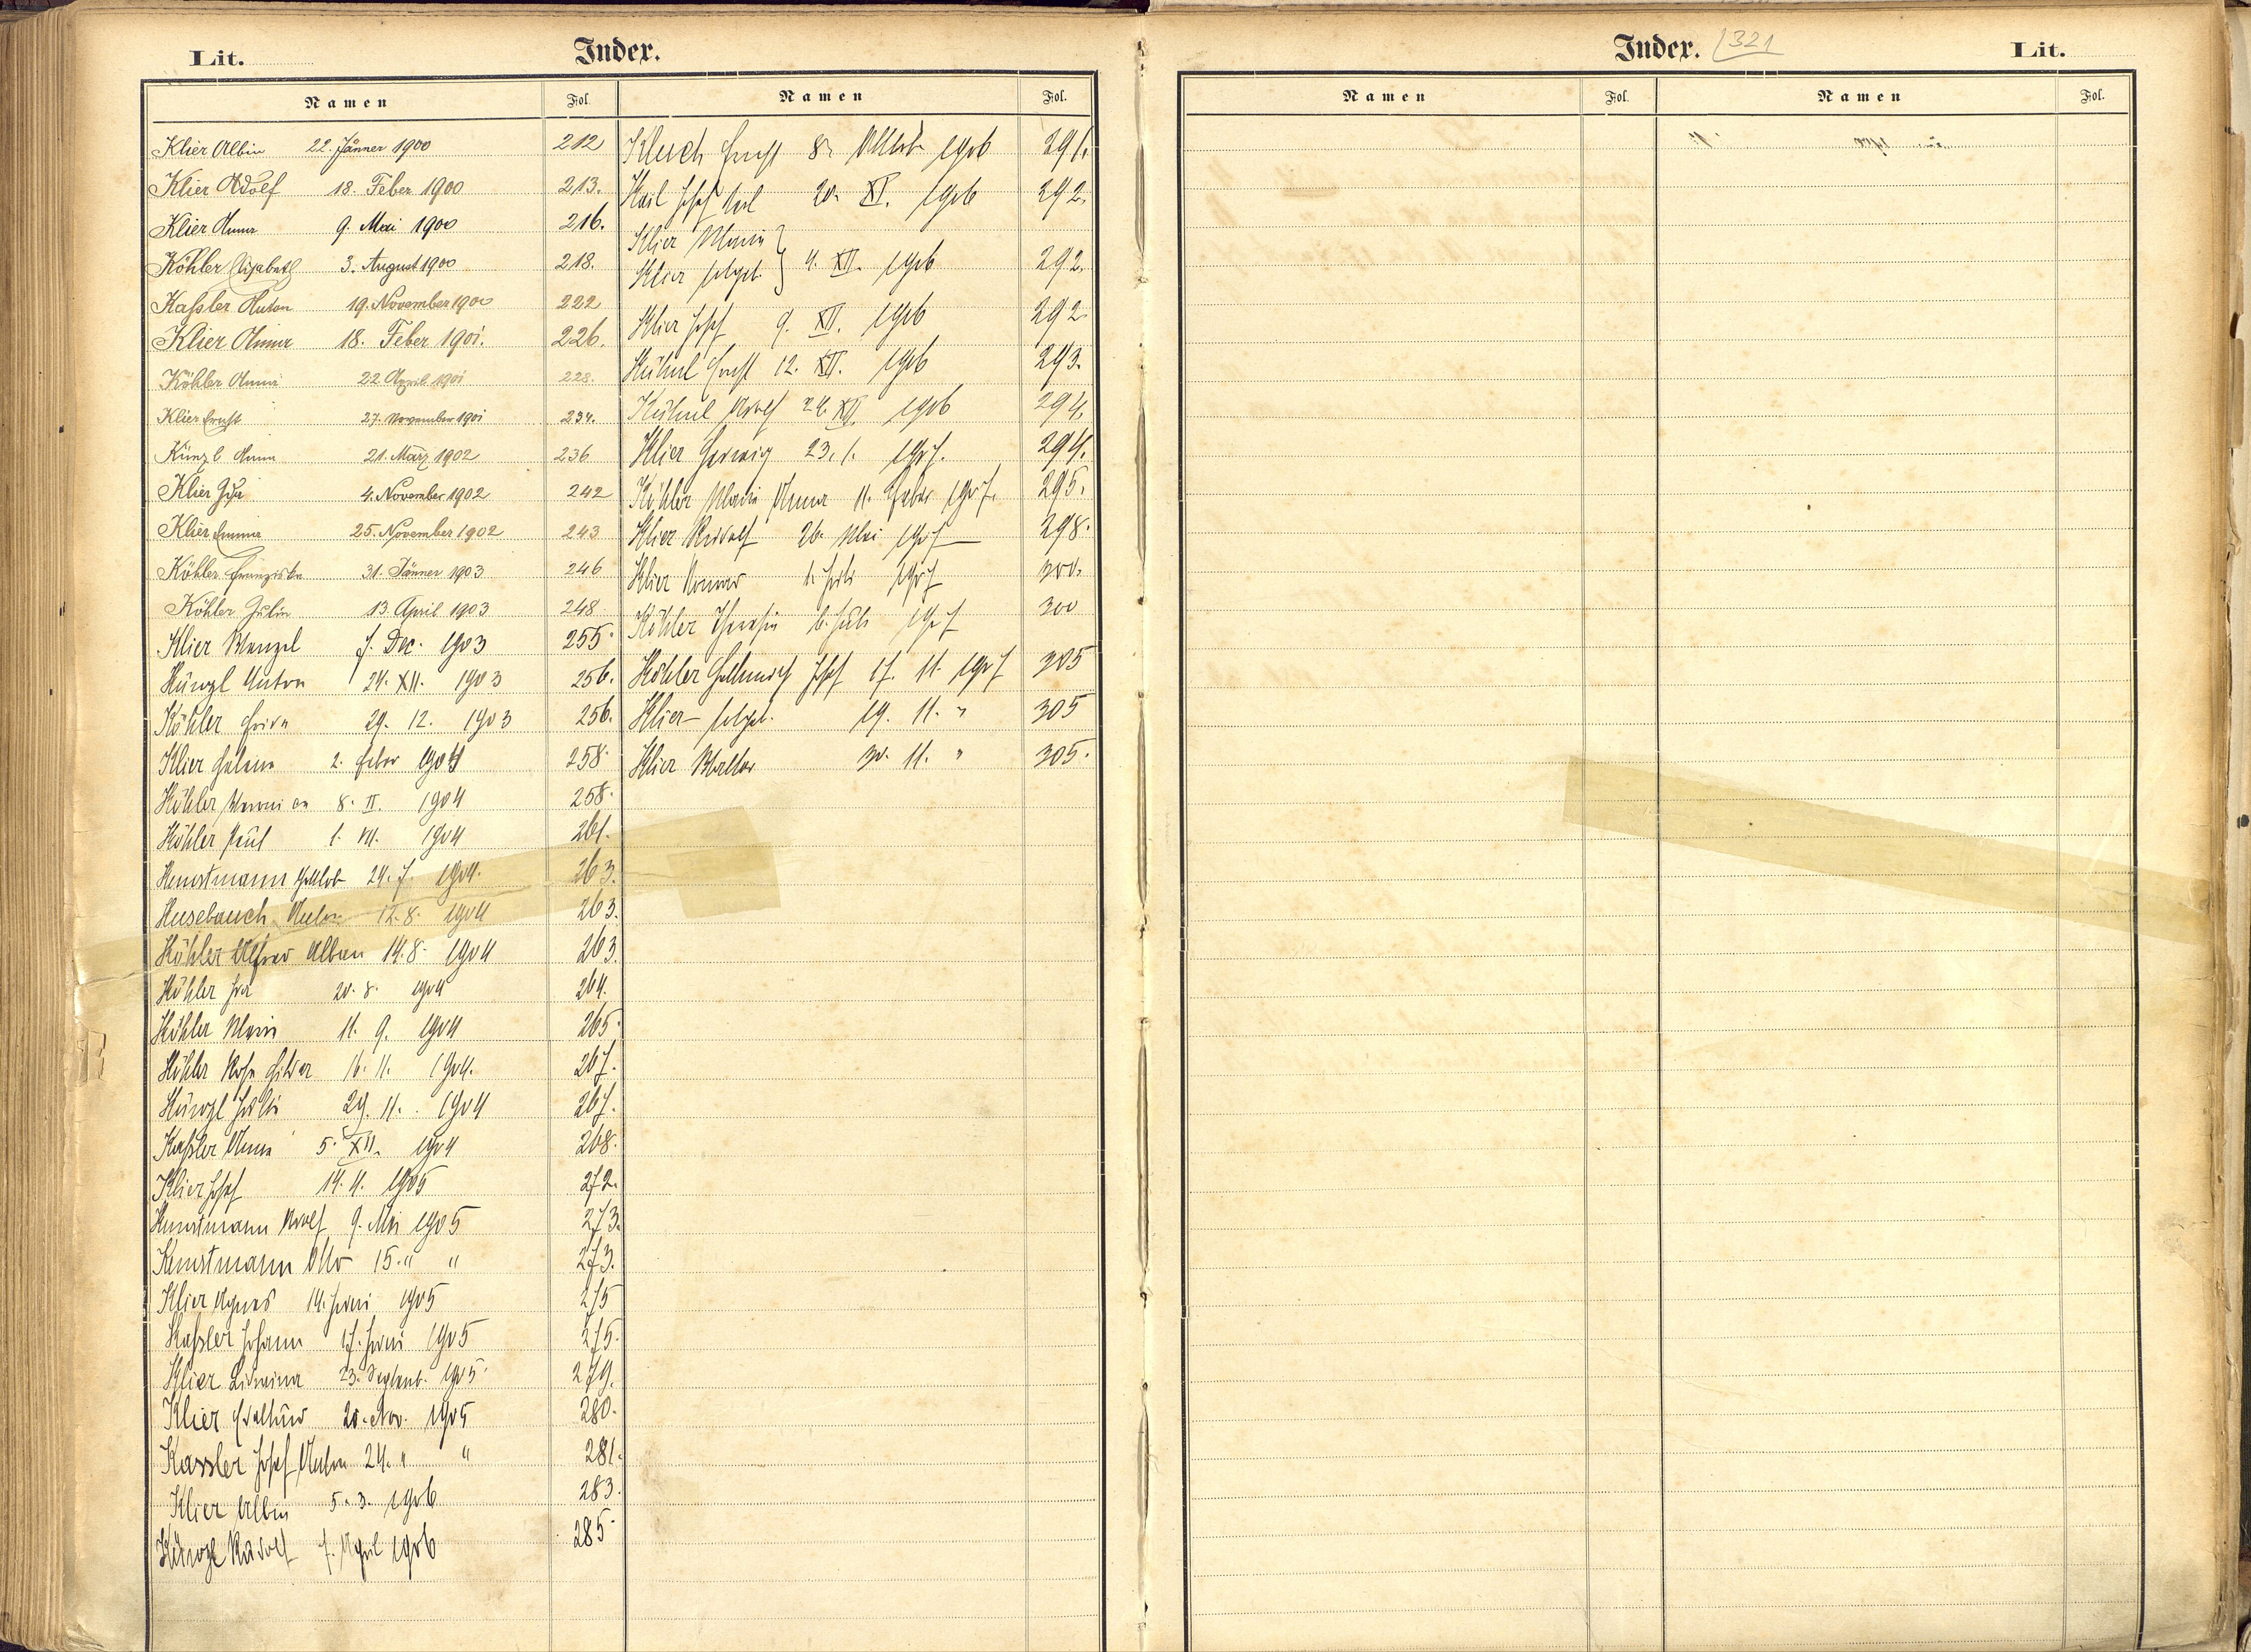 Lit. Index.
Namen Fol. Namen Fol.
Klier Albin 22. Jänner 1900 212
Klier Adolf 18. Feber 1900 213.
Klier Anna 9. Mai 1900 216.
Köhler Elisabeth 3. August 1900 218.
Kaßler Anton 19. November 1900 222
Klier Anna 18. Feber 1901. 226.
Köhler Anna 22 April 1901 228.
Klier Ernst 27. November 1901 234.
Künzl Anna 21. März 1902 236
Klier Ida 4. November 1902 242
Klier Emma 25. November 1902 243
Köhler Franziska 31. Jänner 1903 246
Köhler Julia 13. April 1903 248
Klier Wenzel 7. Dec. 1903 255.
Künzl Anton 24. XII. 1903 256.
Köhler Frida 29. 12. 1903 256.
Klier Helena 2. Feber 1904 258.
Köhler 8. II. 1904 258.
Köhler Paul 1. 1904 261.
Kunstmann Gottlob 24. 7. 1904. 263.
Kusebauch Anton 12. 8. 1904 263.
Köhler Alfred Alban 14. 8. 1904 263.
Köhler 20. 8. 1904 264.
Köhler Marie 11. 9. 1904 265.
Köhler Rosa Hilda 16. 11. 1904. 267.
Künzl 29. 11. 1904 267.
Kaßler Anna 5. XII. 1904 268.
Klier Josef 14. 4. 1905 272.
Kunstmann Adolf 9. Mai 1905 273.
Kunstmann Otto 15. " " 273.
Klier Agnes 14. Juni 1905 275
Kaßler Johann 17. Juni 1905 275.
Klier 23. Septemb. 1905. 279.
Klier 20. Nov. 1905 280.
Kassler Josef Anton 24. " " 281.
Klier Albin 5. 3. 1906 283.
Künzl Rudolf 7. April 1906 285.
Klusch Ernst 8. Oktob. 1906 291.
Keil Josef Karl 20. XI. 1906 292.
Klier Marie
Klier totgeb. } 4. XII. 1906 292.
Klier Josef 9. XII. 1906 292.
Kühnl Ernst 12. XII. 1906 293.
Kühnl Adolf 24. XII. 1906 294.
Klier Hedwig 23. 1. 1907. 294.
Köhler Marie Anna 11. Feber 1907. 295.
Klier Rudolf 26. Mai 1907 298.
Klier Konrad 1. Juli 1907 300.
Köhler Theresia 6. Juli 1907 300
Köhler Hellmuth Josef 17. 11. 1907 305
Klier totgeb. 19. 11. " 305
Klier Walter 30. 11. " 305.
Index. 321 Lit.
Namen Fol. Namen Fol.